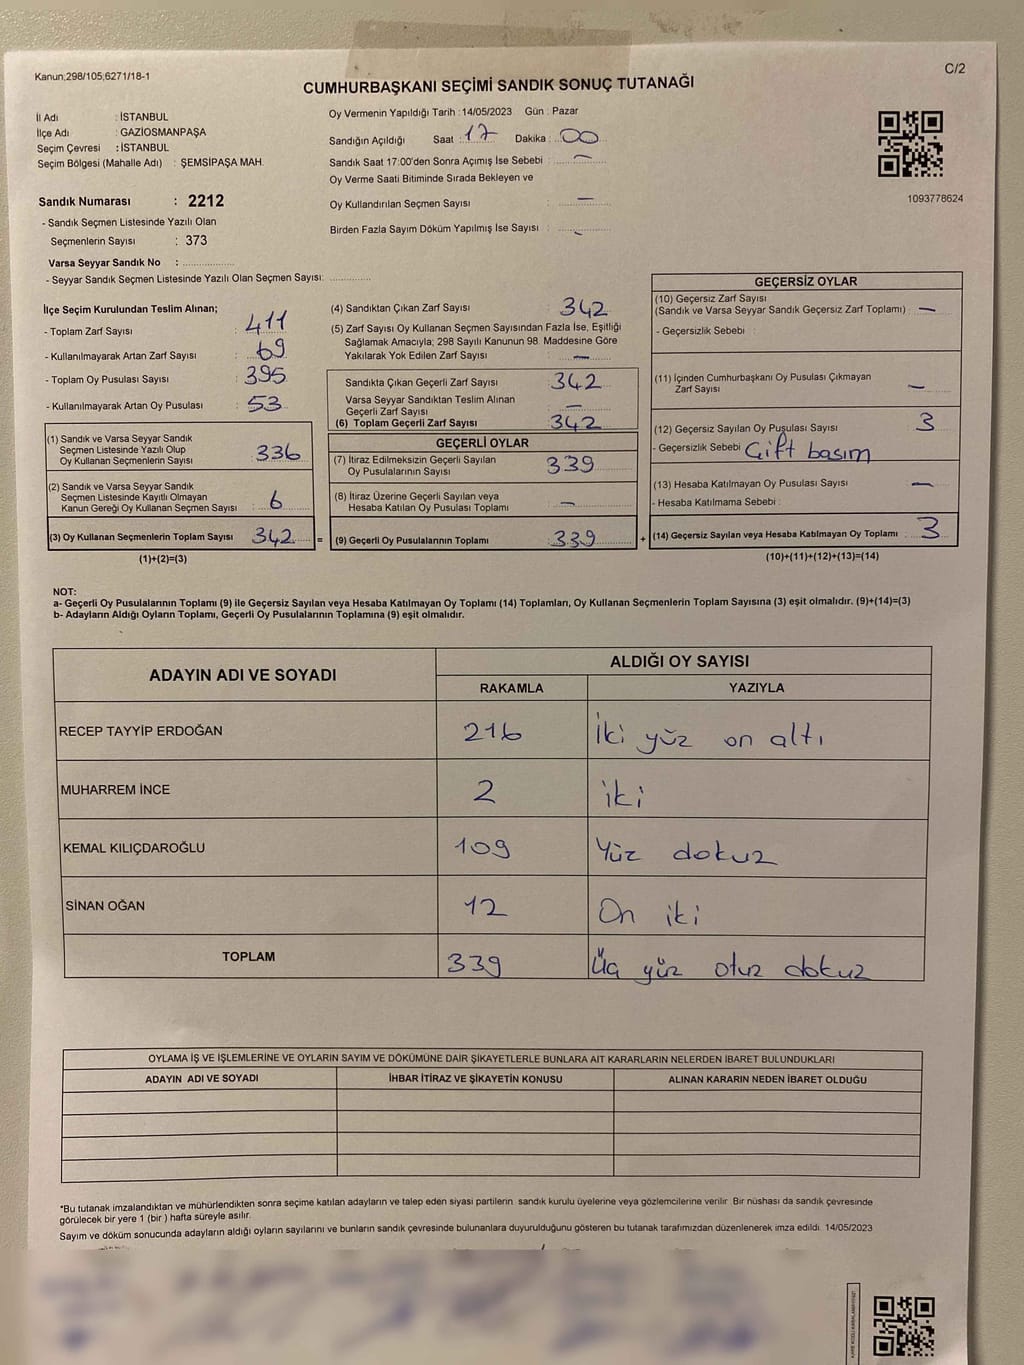 Kanun;298/105,6271/18-1
C/2
CUMHURBAŞKANI SEÇİMİ SANDIK SONUÇ TUTANAĞI
İl Adı : İSTANBUL
İlçe Adı : GAZİOSMANPAŞA
Seçim Çevresi : İSTANBUL
Seçim Bölgesi (Mahalle Adı) : ŞEMSİPAŞA MAH.
Oy Vermenin Yapıldığı Tarih : 14/05/2023 Gün : Pazar
Sandığın Açıldığı Saat : 17 Dakika : 00
Sandık Saat 17:00'den Sonra Açımış İse Sebebi : —
Oy Verme Saati Bitiminde Sırada Bekleyen ve
Oy Kullandırılan Seçmen Sayısı : —
Birden Fazla Sayım Döküm Yapılmış İse Sayısı : -
1093778624
Sandık Numarası : 2212
- Sandık Seçmen Listesinde Yazılı Olan
Seçmenlerin Sayısı : 373
Varsa Seyyar Sandık No :
- Seyyar Sandık Seçmen Listesinde Yazılı Olan Seçmen Sayısı:
İlçe Seçim Kurulundan Teslim Alınan;
- Toplam Zarf Sayısı : 411
- Kullanılmayarak Artan Zarf Sayısı : 69
- Toplam Oy Pusulası Sayısı : 395
- Kullanılmayarak Artan Oy Pusulası : 53
(1) Sandık ve Varsa Seyyar Sandık
Seçmen Listesinde Yazılı Olup
Oy Kullanan Seçmenlerin Sayısı : 336
(2) Sandık ve Varsa Seyyar Sandık
Seçmen Listesinde Kayıtlı Olmayan
Kanun Gereği Oy Kullanan Seçmen Sayısı : 6
(3) Oy Kullanan Seçmenlerin Toplam Sayısı : 342 =
(1)+(2)=(3)
(4) Sandıktan Çıkan Zarf Sayısı : 342
(5) Zarf Sayısı Oy Kullanan Seçmen Sayısından Fazla İse, Eşitliği
Sağlamak Amacıyla; 298 Sayılı Kanunun 98. Maddesine Göre
Yakılarak Yok Edilen Zarf Sayısı : —
Sandıkta Çıkan Geçerli Zarf Sayısı : 342
Varsa Seyyar Sandıktan Teslim Alınan
Geçerli Zarf Sayısı : —
(6) Toplam Geçerli Zarf Sayısı : 342
GEÇERLİ OYLAR
(7) İtiraz Edilmeksizin Geçerli Sayılan
Oy Pusulalarının Sayısı : 339
(8) İtiraz Üzerine Geçerli Sayılan veya
Hesaba Katılan Oy Pusulası Toplamı : —
(9) Geçerli Oy Pusulalarının Toplamı : 339 +
GEÇERSİZ OYLAR
(10) Geçersiz Zarf Sayısı
(Sandık ve Varsa Seyyar Sandık Geçersiz Zarf Toplamı) : —
- Geçersizlik Sebebi :
(11) İçinden Cumhurbaşkanı Oy Pusulası Çıkmayan
Zarf Sayısı : —
(12) Geçersiz Sayılan Oy Pusulası Sayısı : 3
- Geçersizlik Sebebi : Çift basım
(13) Hesaba Katılmayan Oy Pusulası Sayısı : —
- Hesaba Katılmama Sebebi :
(14) Geçersiz Sayılan veya Hesaba Katılmayan Oy Toplamı : 3
(10)+(11)+(12)+(13)=(14)
NOT:
a- Geçerli Oy Pusulalarının Toplamı (9) ile Geçersiz Sayılan veya Hesaba Katılmayan Oy Toplamı (14) Toplamları, Oy Kullanan Seçmenlerin Toplam Sayısına (3) eşit olmalıdır. (9)+(14)=(3)
b- Adayların Aldığı Oyların Toplamı, Geçerli Oy Pusulalarının Toplamına (9) eşit olmalıdır.
ADAYIN ADI VE SOYADI ALDIĞI OY SAYISI
RAKAMLA YAZIYLA
RECEP TAYYİP ERDOĞAN 216 İki yüz on altı
MUHARREM İNCE 2 iki
KEMAL KILIÇDAROĞLU 109 Yüz dokuz
SİNAN OĞAN 12 On iki
TOPLAM 339 Üç yüz otuz dokuz
OYLAMA İŞ VE İŞLEMLERİNE VE OYLARIN SAYIM VE DÖKÜMÜNE DAİR ŞİKAYETLERLE BUNLARA AİT KARARLARIN NELERDEN İBARET BULUNDUKLARI
ADAYIN ADI VE SOYADI İHBAR İTİRAZ VE ŞİKAYETİN KONUSU ALINAN KARARIN NEDEN İBARET OLDUĞU
*Bu tutanak imzalandıktan ve mühürlendikten sonra seçime katılan adayların ve talep eden siyasi partilerin sandık kurulu üyelerine veya gözlemcilerine verilir. Bir nüshası da sandık çevresinde
görülecek bir yere 1 (bir ) hafta süreyle asılır.
Sayım ve döküm sonucunda adayların aldığı oyların sayılarını ve bunların sandık çevresinde bulunanlara duyurulduğunu gösteren bu tutanak tarafımızdan düzenlenerek imza edildi. 14/05/2023